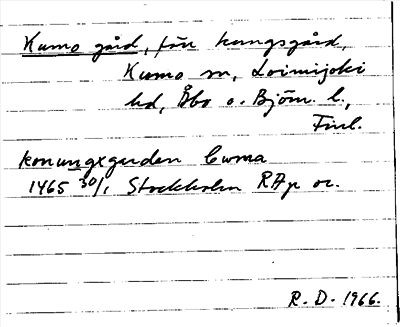 Kumo gård, förr kungsgård,
Kumo sn, Loimijoki
hd, Åbo o. Björn. l.,
Finl.
konungxgarden Cumo
1465 30/1 Stockholm RAp or.
R. D. 1966.